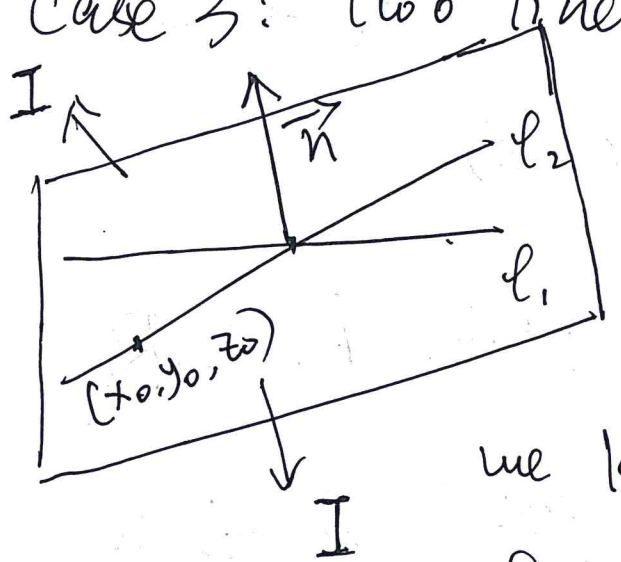 Case 3: Two line
I
n
ℓ₂
ℓ₁
(x₀, y₀, z₀)
we
I